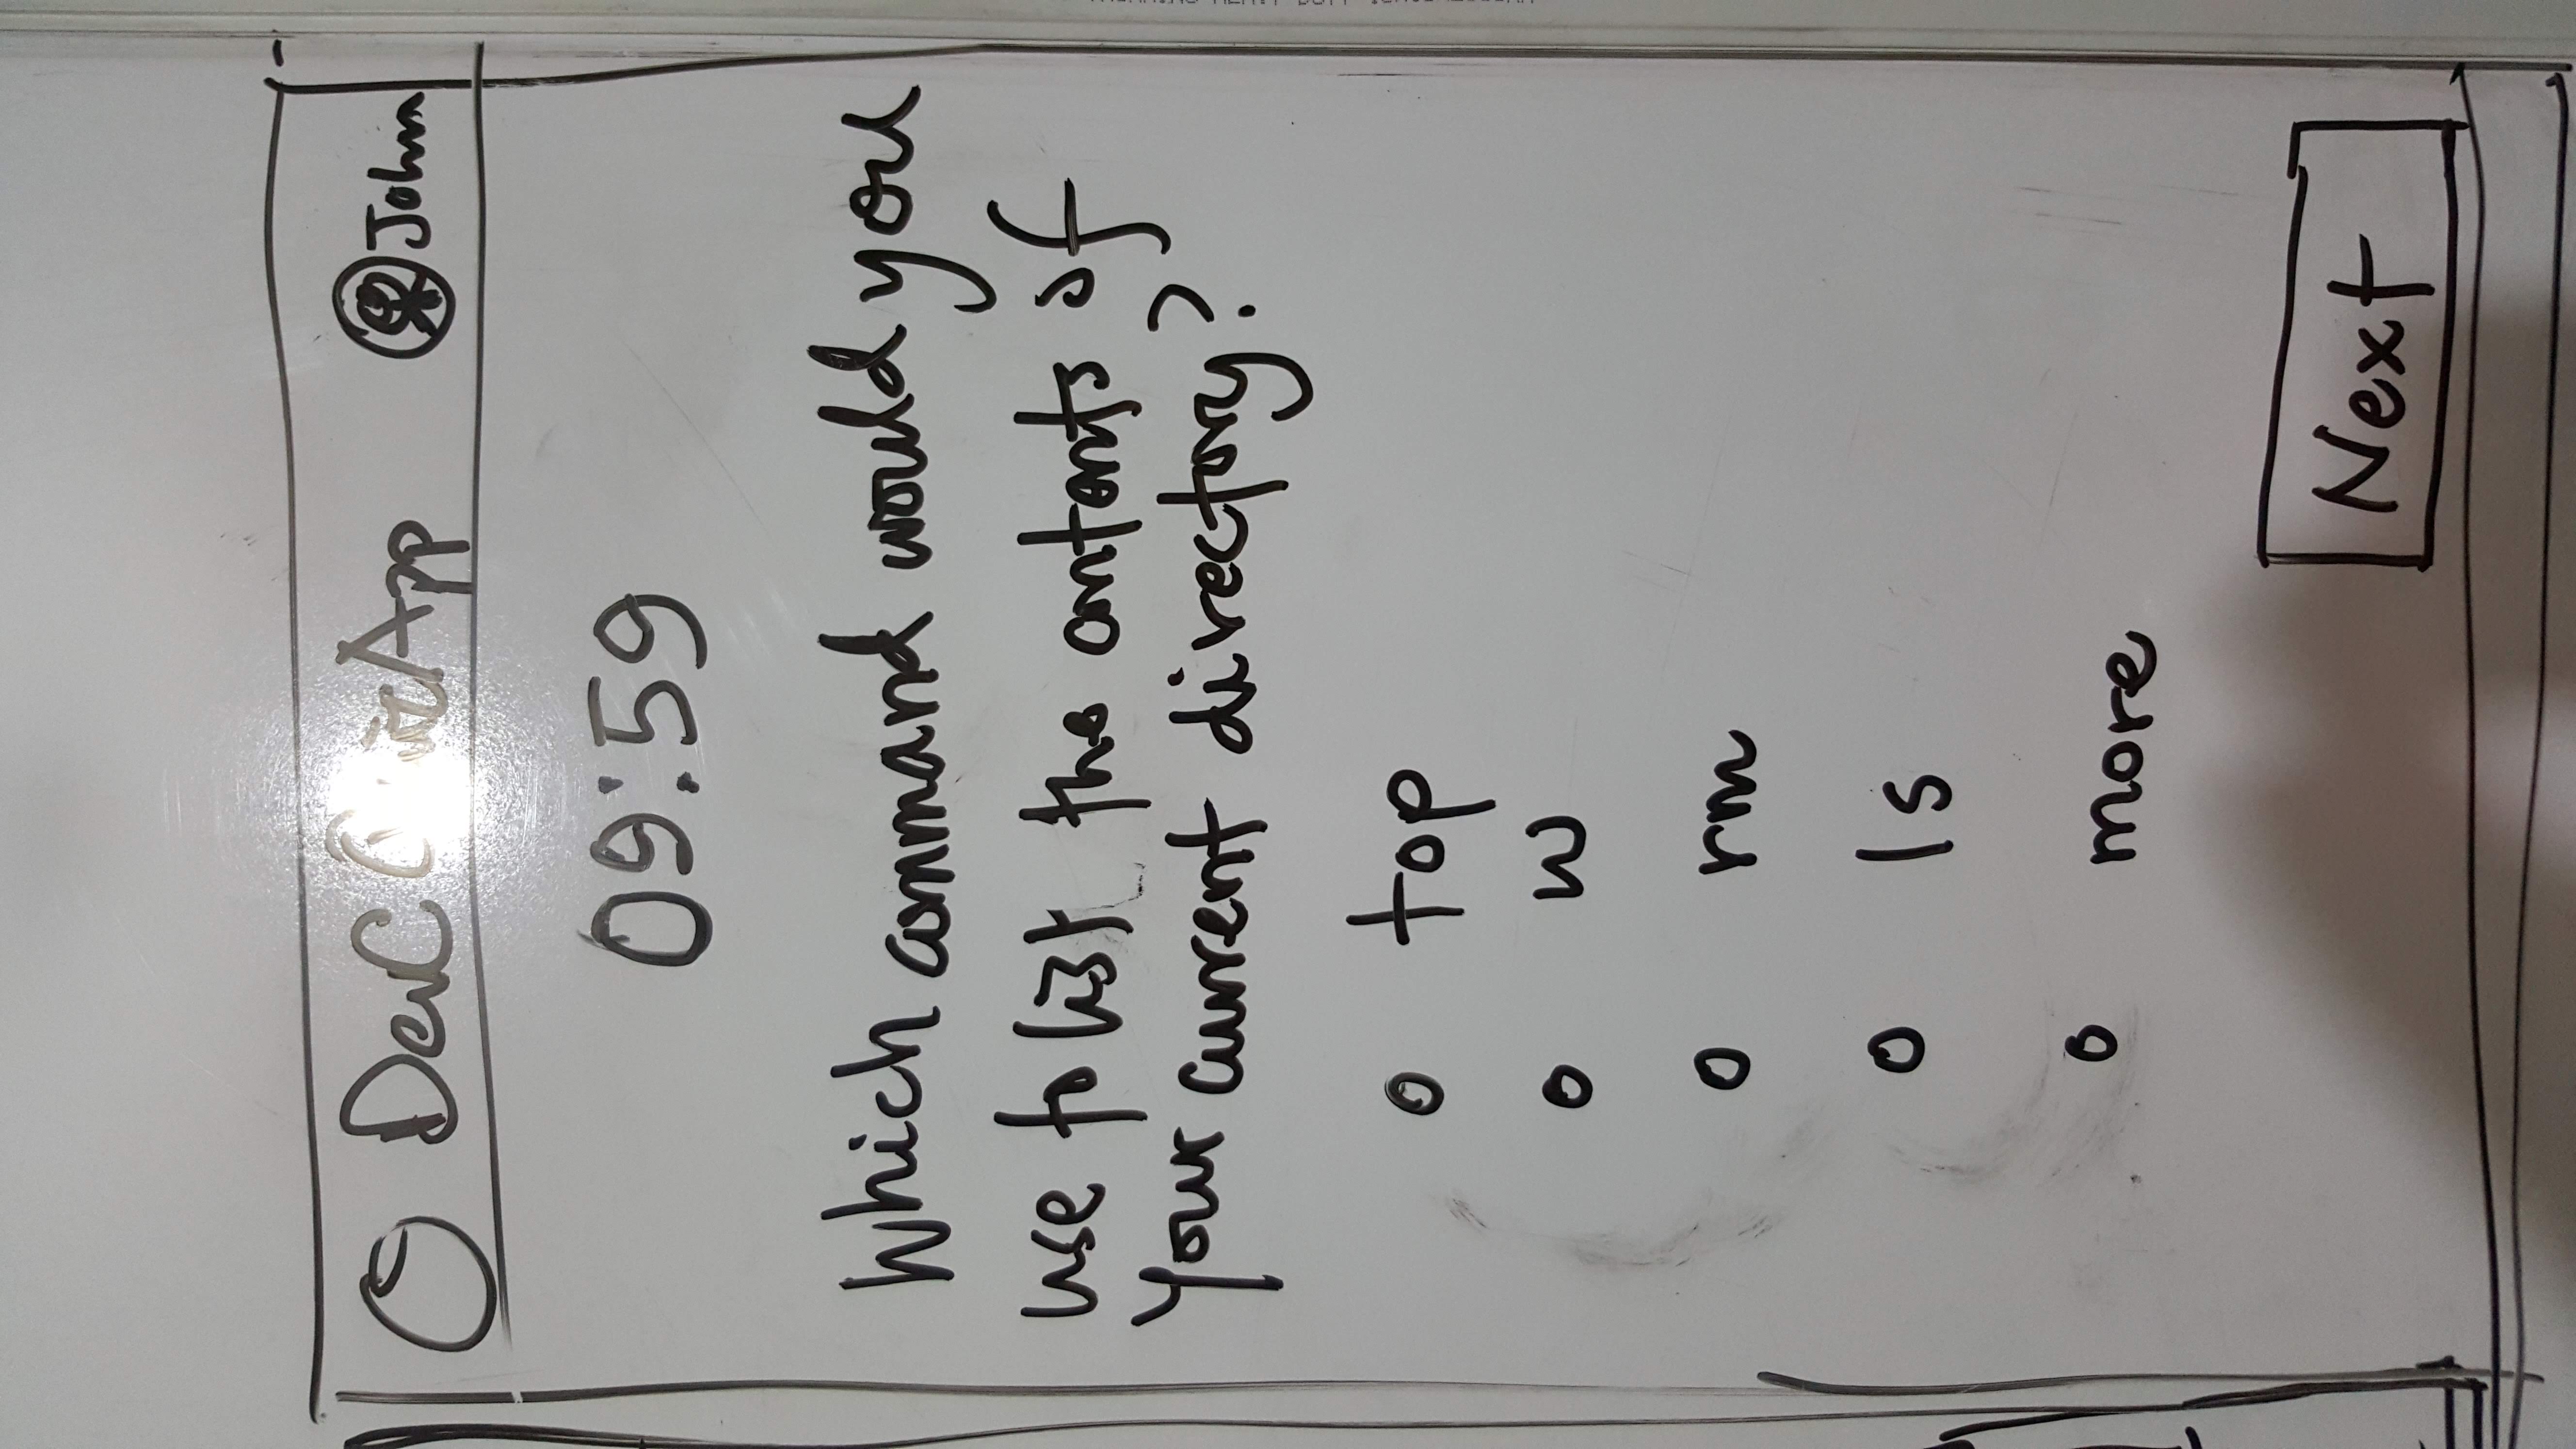 DevC Quiz App John
09:59
Which command would you
use to list the contents of
Your current directory?
top
w
rm
ls
more
Next